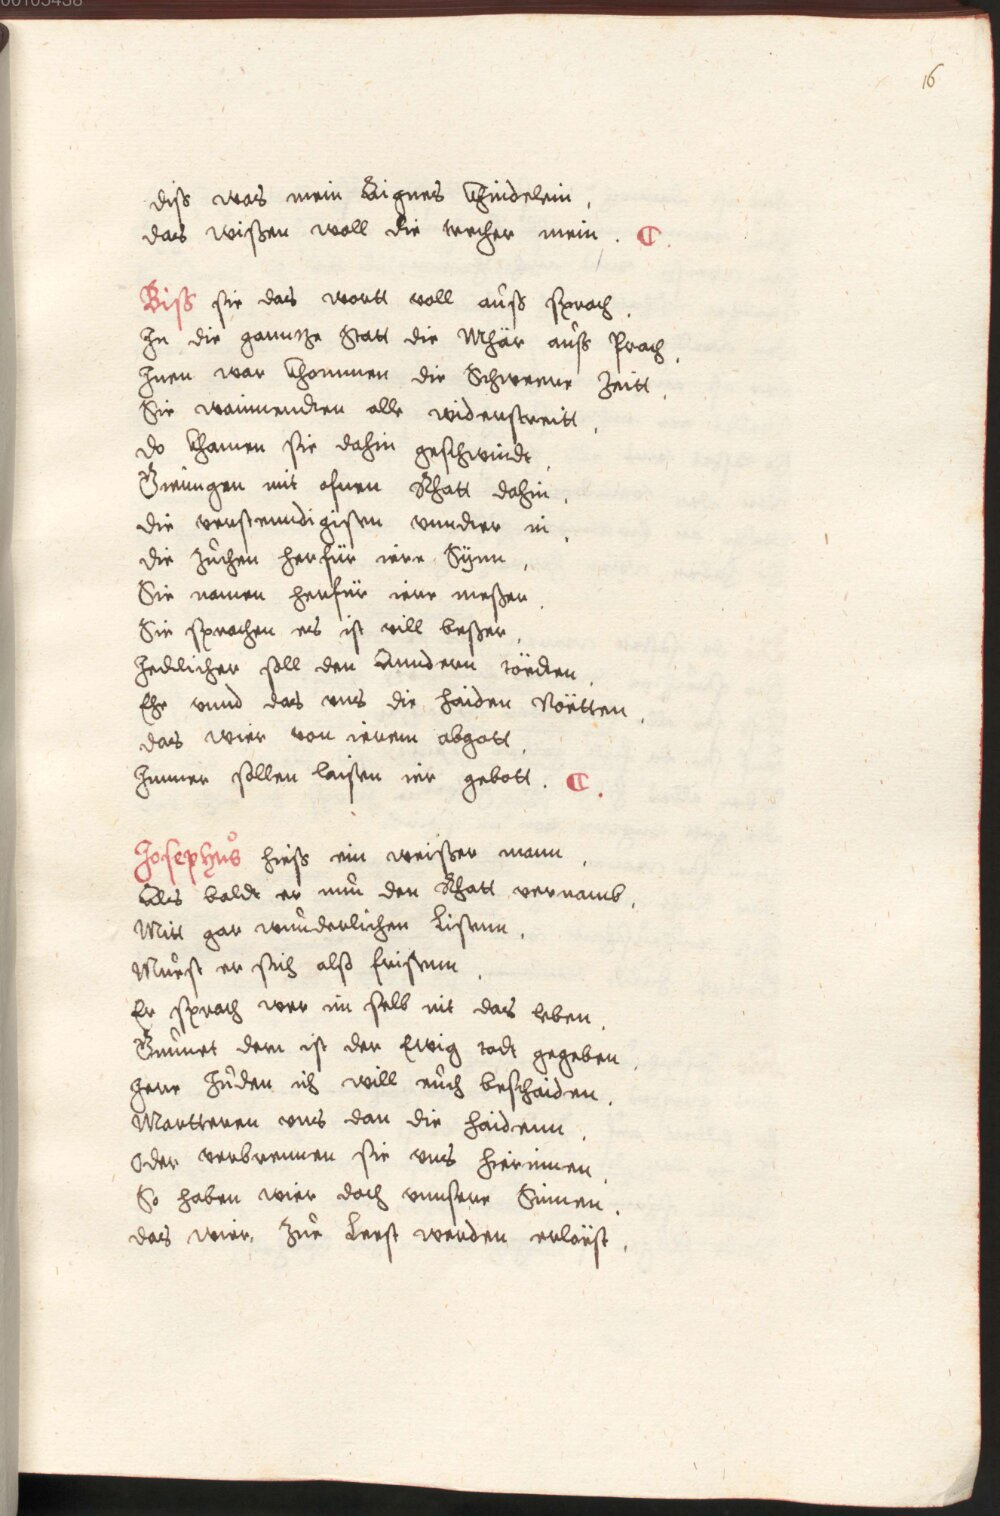 00105438
16
diss was mein Aignes Khindelein,
das wissen woll die trecher mein. C.
Biss sie das wortt voll auss sprach,
In die ganntze Statt die Mhär auss Prach,
Inen war Khommen die Schwerer Zeitt,
Sie wainnendten alle widerstreitt,
do Khamen sie dahin geschwindt,
Giengen mit ofnen Rhatt dahin,
die verstenndigisten vnndter in,
die Zuchen herfür iere Synn,
Sie namen herfür iere messer,
Sie sprachen es ist vill besser,
Jedlicher soll den Anndern tördten,
Ehe vnnd das vns die haiden Nötten,
das wier von ierem abgott,
Immer sollen laisten ier gebott. C.
Josephus hiess ein weisser mann,
Als baldt er nun den Rhatt vernamb,
Mitt gar wunderlichen Listenn,
Muest er sich also fristenn,
Er sprach wer im selb nit das leben,
Günnet dem ist der Ewig todt gegeben,
Herr Juden ich will euch beschaiden,
Martteren vns dan die haidenn,
Oder verbrennen sie vns hierinnen,
So haben wier doch vnnsere Sinnen,
das wier, Zue Leest werden erlöest,